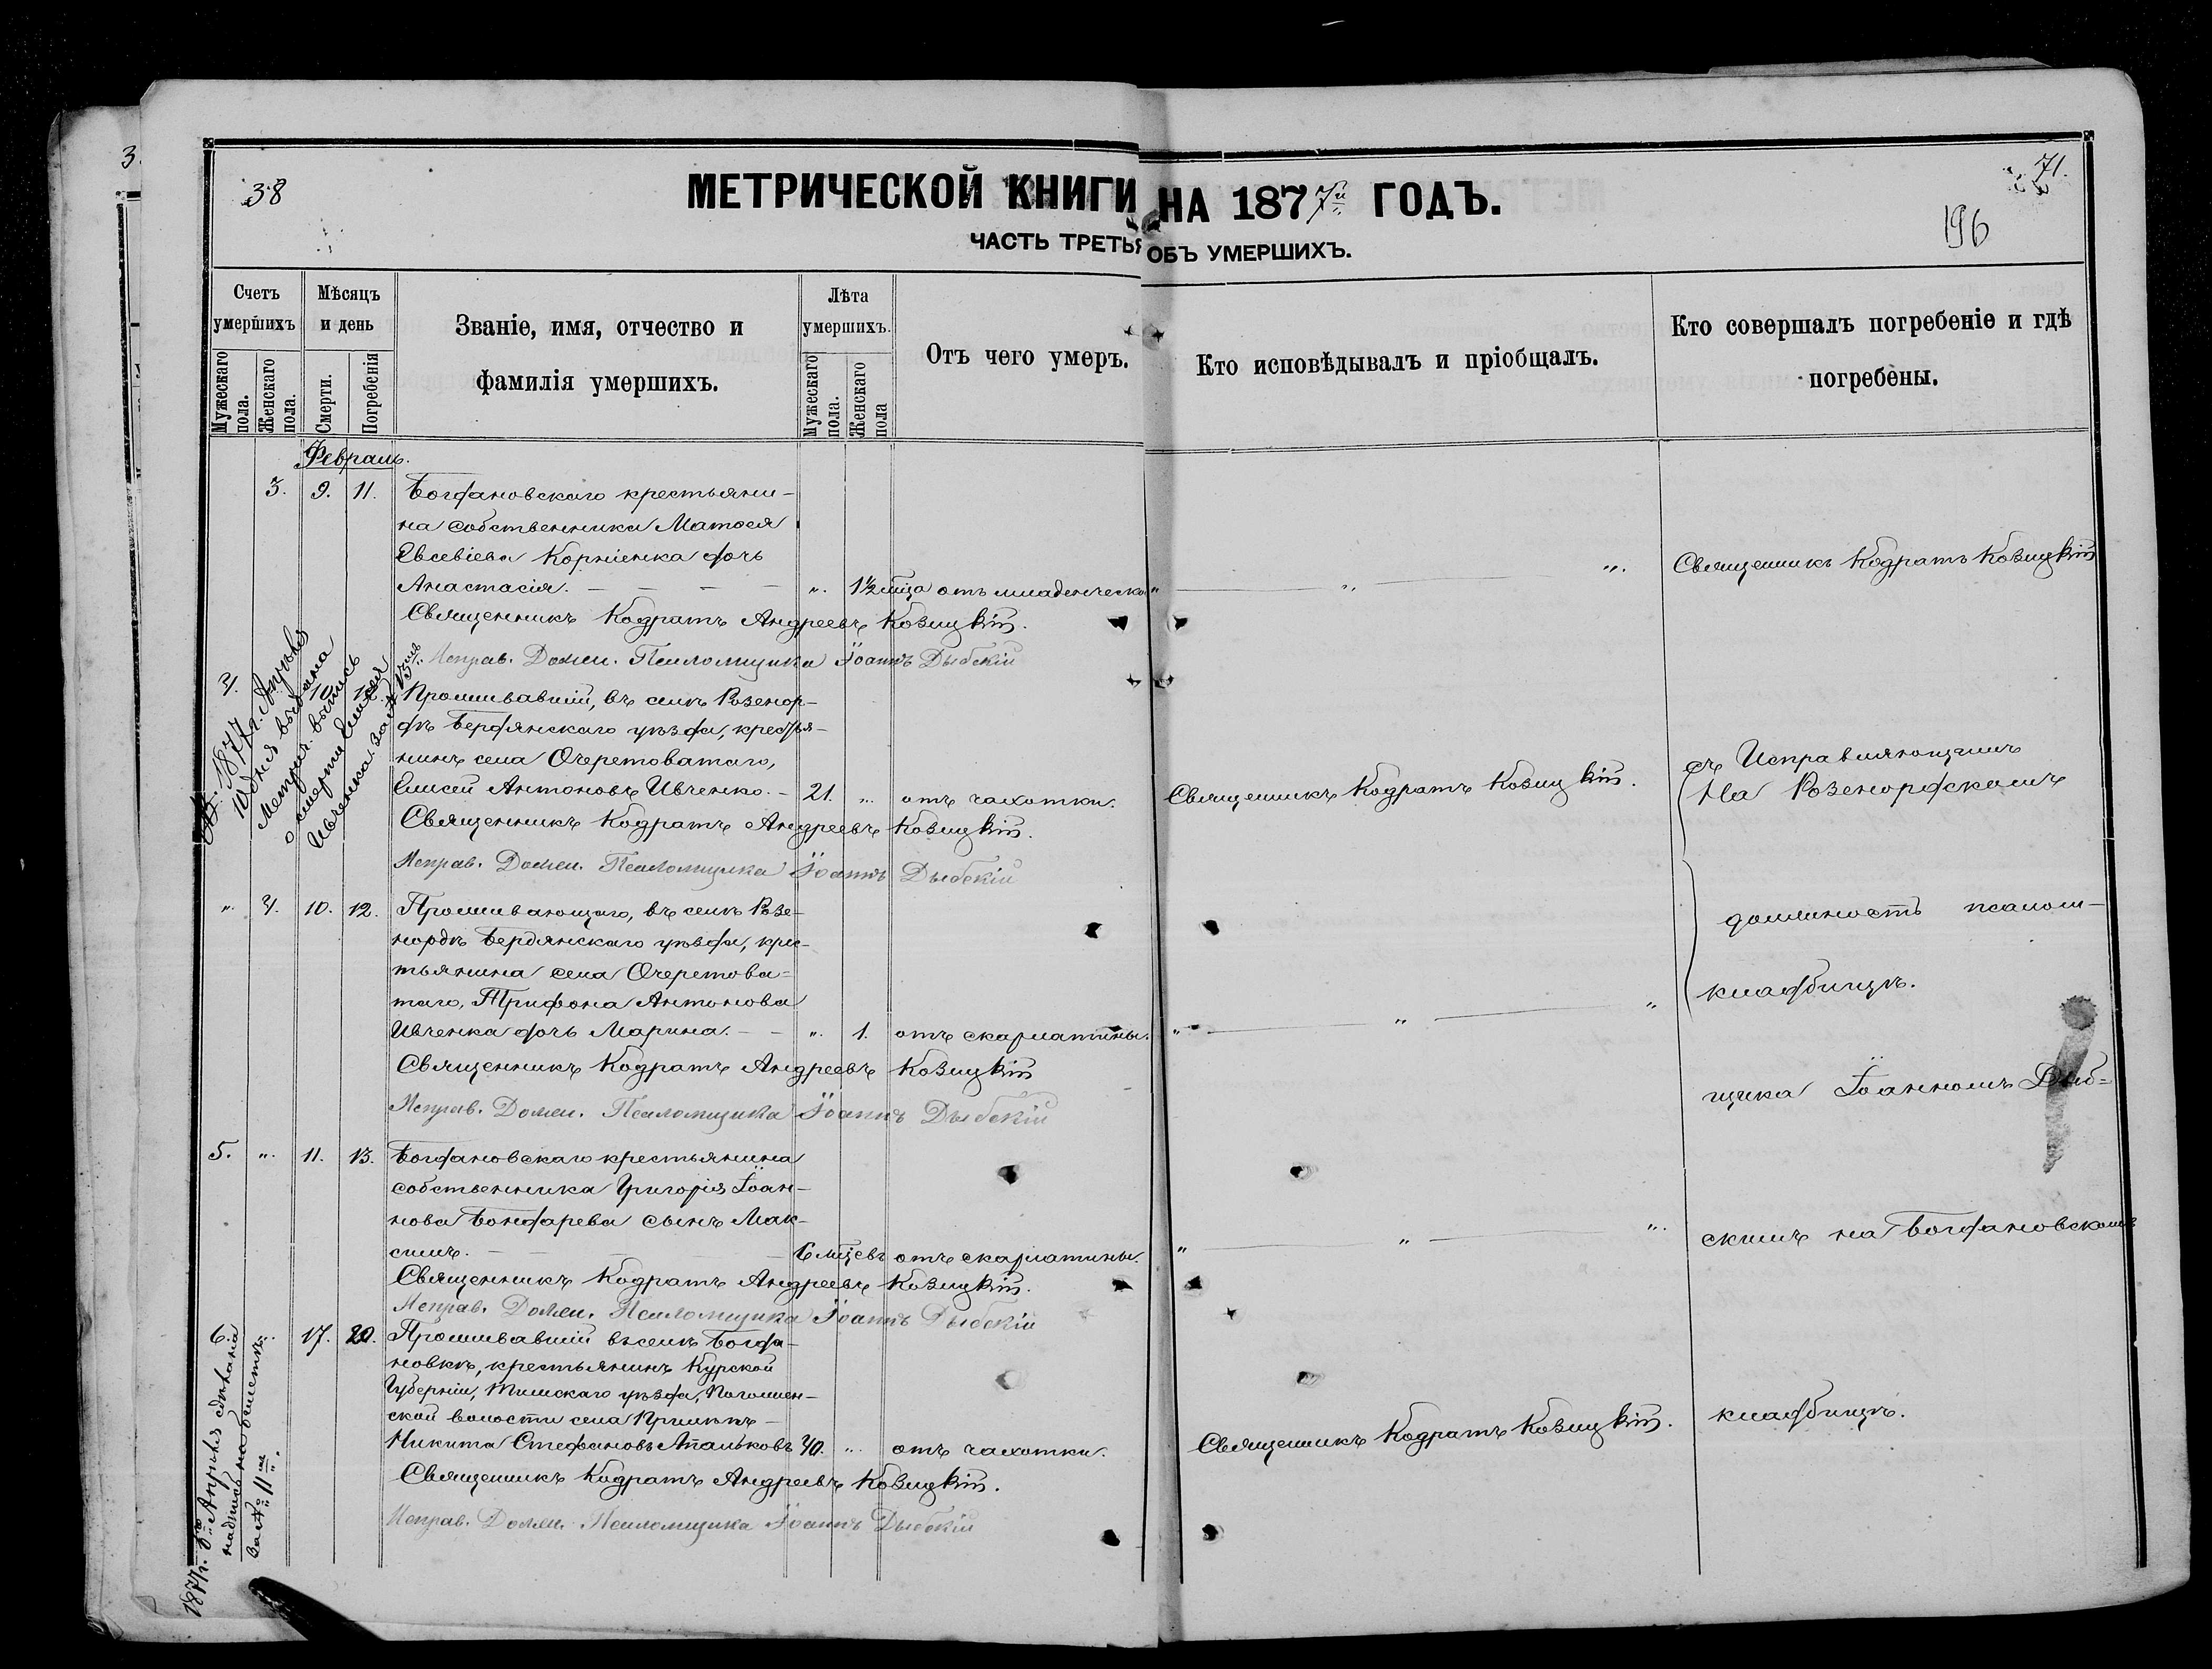 38
71.
196
МЕТРИЧЕСКОЙ КНИГИ НА 1877й ГОДЪ.
ЧАСТЬ ТРЕТЬЯ ОБЪ УМЕРШИХЪ.
Счетъ умершихъ
Мѣсяцъ и день
Званіе, имя, отчество и фамилія умершихъ.
Лѣта умершихъ.
Отъ чего умеръ.
Кто исповѣдывалъ и пріобщалъ.
Кто совершалъ погребеніе и гдѣ погребены.
Мужескаго пола.
Женскаго пола.
Смерти.
Погребенія
Мужескаго пола.
Женскаго пола
Февраль.
3. 9. 11. Богдановскаго крестьяни-
на собственника Матѳея
Евсевіева Корніенка дочь
Анастасія. — — — — ". 1½ мѣца отъ младенческо " — " — ". Священникъ Кодратъ Козицкій
Священникъ Кодратъ Андреевъ Козицкій.
Исправ. Должн. Псаломщика Іоаннъ Дыбскій
4. 10. 12. Проживавшій, въ селѣ Розенор-
фѣ Бердянскаго уѣзда, крестья-
нинъ села Очеретоватаго,
Елисей Антоновъ Ивченко. — 21. ". отъ чахотки. Священникъ Кодратъ Козицкій.
съ Исправляющимъ
На Розенорфскомъ
Священникъ Кодратъ Андреевъ Козицкій.
Исправ. Должн. Псаломщика Іоаннъ Дыбскій
1877 г. Апрѣля
10 дня выдана
Метрич. выпись
о смерти Елисея
Ивченка за № 13мъ
". 4. 10. 12. Проживающаго, въ селѣ Розе-
норфѣ Бердянскаго уѣзда, крес-
тьянина села Очеретова-
таго, Трифона Антонова
Ивченка дочь Марина. — — ". 1. отъ скарлатины. " — " — "
должность псалом-
кладбищѣ.
Священникъ Кодратъ Андреевъ Козицкій
Исправ. Должн. Псаломщика Іоаннъ Дыбскій
щика Іоанномъ Дыб-
5. ". 11. 13. Богдановскаго крестьянина
собственника Григорія Іоан-
нова Бондарева сынъ Мак-
симъ. — — — — 6 мѣцевъ отъ скарлатины. " — " — ".
скимъ на Богдановскомъ
Священникъ Кодратъ Андреевъ Козицкій.
Исправ. Должн. Псаломщика Іоаннъ Дыбскій
6. ". 17. 20. Проживавшій въ селѣ Богда-
новкѣ, крестьянинъ Курской
Губерніи, Тимскаго уѣзда,
ской волости села
Никита Стефановъ 40. ". отъ чахотки. Священникъ Кодратъ Козицкій.
кладбищѣ.
Священникъ Кодратъ Андреевъ Козицкій.
Исправ. Должн. Псаломщика Іоаннъ Дыбскій
1877 г. Апрѣля сдѣлана
надпись на билетѣ
за № 11мъ.